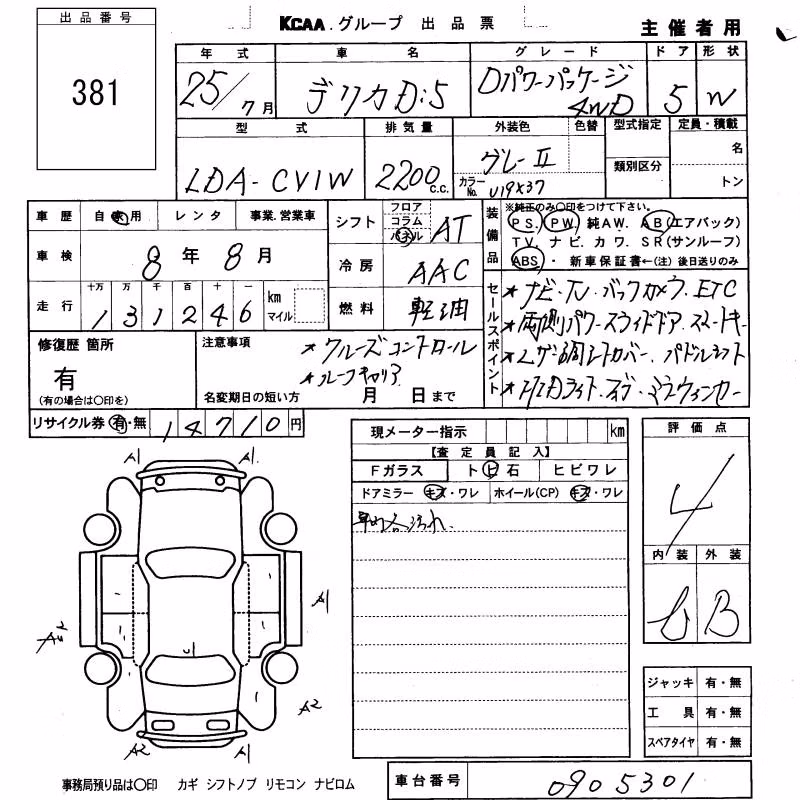 出品番号
KCAA.グループ 出品票
主催者用
381
年式 車名 グレード ドア 形状
25/7月 デリカD:5 Dパワーパッケージ 4WD 5 W
型式 排気量 外装色 色替 型式指定 定員・積載
名
類別区分
LDA-CV1W 2200 c.c. グレーII
カラーNo. U19X37
トン
車歴 自家用 レンタ 事業.営業車
シフト フロア コラム パネル AT
装備品 ※純正のみ〇印をつけて下さい。
PS. PW. 純AW. AB(エアバック)
TV. ナビ. カワ. SR(サンルーフ)
ABS・ 新車保証書←(注)後日送りのみ
車検 8年8月
冷房 AAC
走行 十万 万 千 百 十 一
131246 km マイル
燃料 軽油
セールスポイント
★ナビ・TV・バックカメラ・ETC
★両側パワースライドドア スマートキー
パドルシフト
修復歴 箇所
有
(有の場合は〇印を)
注意事項
★クルーズコントロール
★ルーフキャリア
名変期日の短い方 月 日まで
リサイクル券 有・無 14710円
現メーター指示 km
【査定員記入】
Fガラス ト ヒ 石 ヒビワレ
ドアミラー キズ・ワレ ホイール(CP) キズ・ワレ
評価点
4
内装 外装
B
A1 A1.
A1
A2
A2 A1
ジャッキ 有・無
工具 有・無
スペアタイヤ 有・無
事務局預り品は〇印 カギ シフトノブ リモコン ナビロム
車台番号 0905301